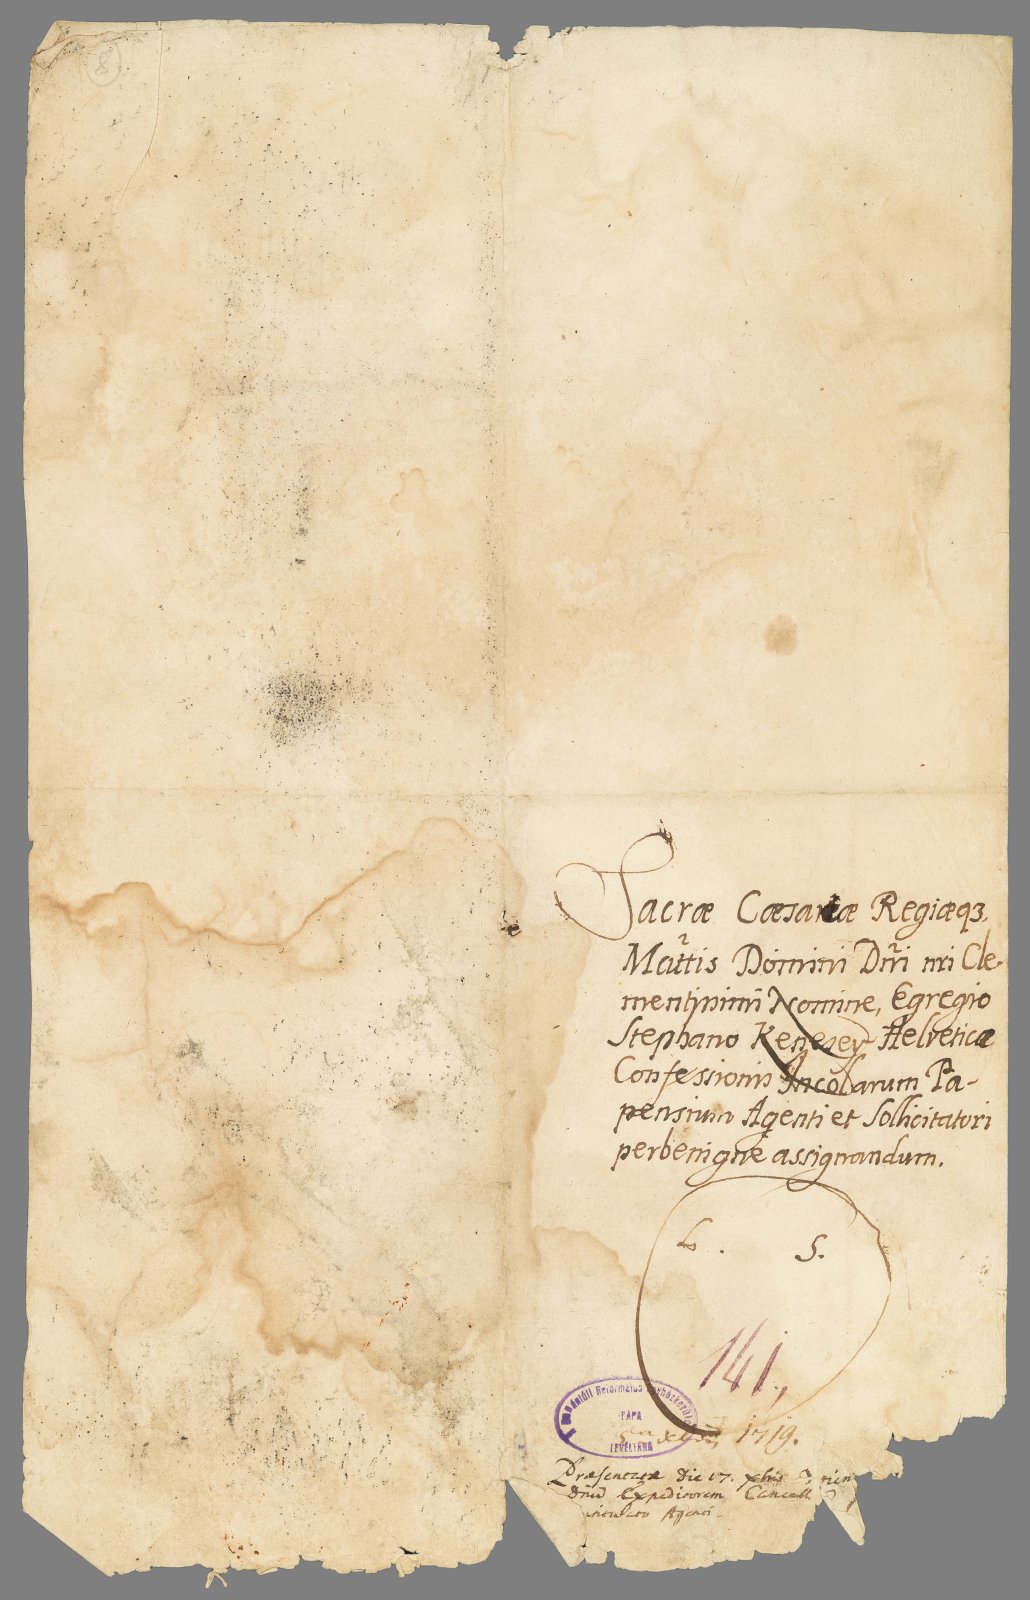 8
Sacræ Cæsareæ Regiæqȝ.
Mattis Domini Dñi nri Cle-
mentissimi Nomine, Egregio
Stephano Kenesey Helveticæ
Confessionis Incolarum Pa-
pensium Agenti et Sollicitatori
perbenigne assignandum.
L. S.
141.,
Dunántúli Református Egyházkerület
PÁPA
LEVÉLTÁRA
Xbris 1719.
Præsentatæ Die 17. xbris
Dnũ Expeditorem Cancell
titulato Agenti.